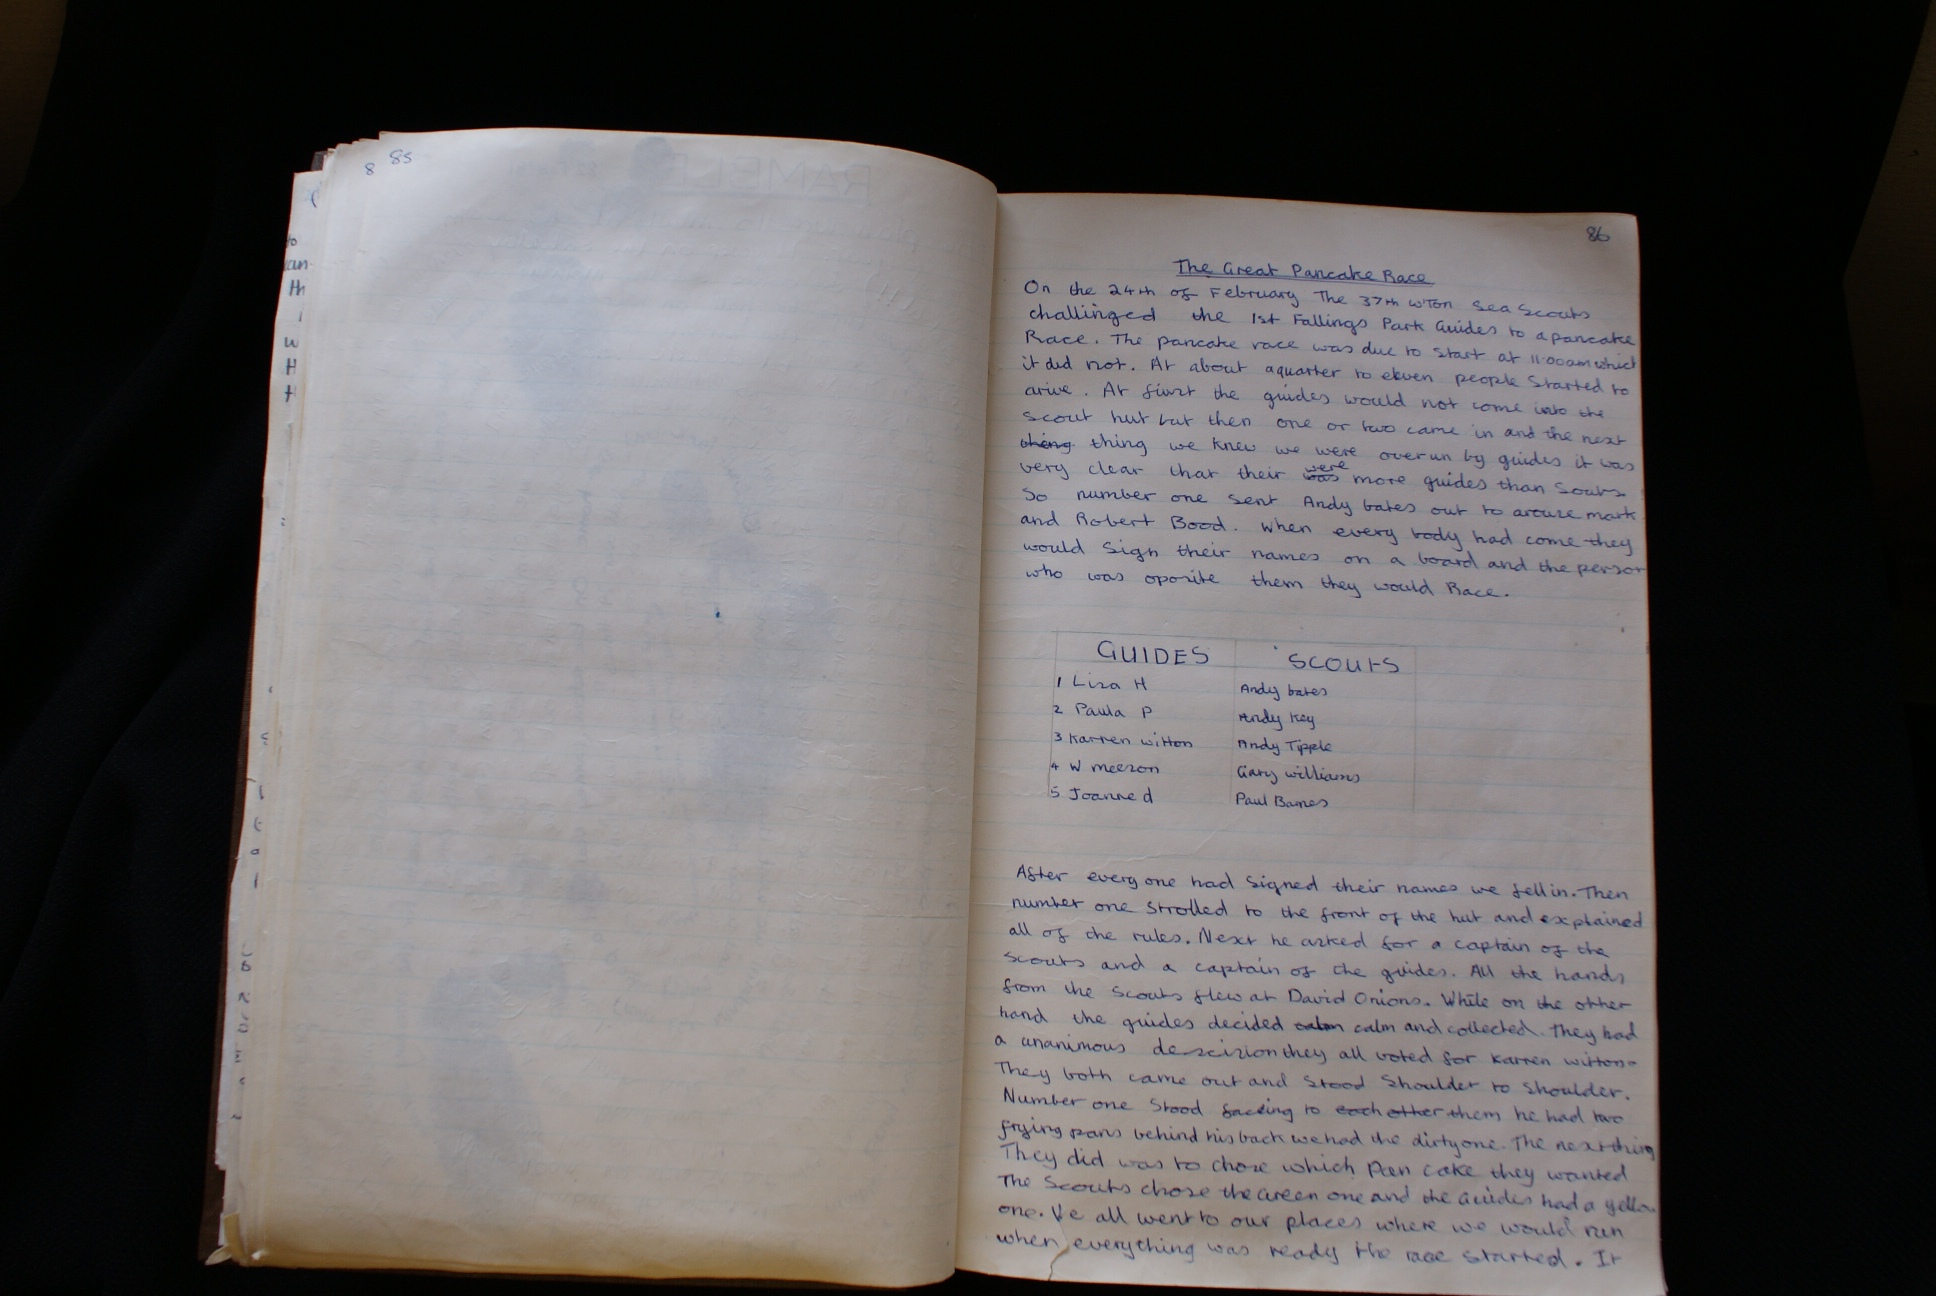 8 85
86
The Great Pancake Race
On the 24th of February The 37th W'Ton Sea Scouts
challinged the 1st Fallings Park Guides to a pancake
Race. The pancake race was due to start at 11.00am which
it did not. At about aquarter to eleven people started to
arive. At first the guides would not come into the
scout hut but then one or two came in and the next
thing thing we knew we were overun by guides it was
very clear that their was were more guides than Scouts.
So number one sent Andy bates out to arouse mark
and Robert Bood. When every body had come they
would sign their names on a board and the person
who was oposite them they would Race.
GUIDES SCOUTS
1 Lisa H Andy bates
2 Paula P Andy Key
3 Karren witton Andy Tipple
4 W meeson Gary williams
5 Joanne d Paul Barnes
After every one had signed their names we fell in. Then
number one strolled to the front of the hut and explained
all of the rules. Next he asked for a captain of the
scouts and a captain of the guides. All the hands
from the scouts flew at David Onions. While on the other
hand the guides decided calm calm and collected. They had
a unanimous descision they all voted for Karren witton.
They both came out and stood shoulder to shoulder.
Number one stood facing to each other them he had two
frying pans behind his back we had the dirty one. The next thing
They did was to chose which Pan cake they wanted
The Scouts chose the Green one and the Guides had a yellow
one. We all went to our places where we would run
when everything was ready the race started. It